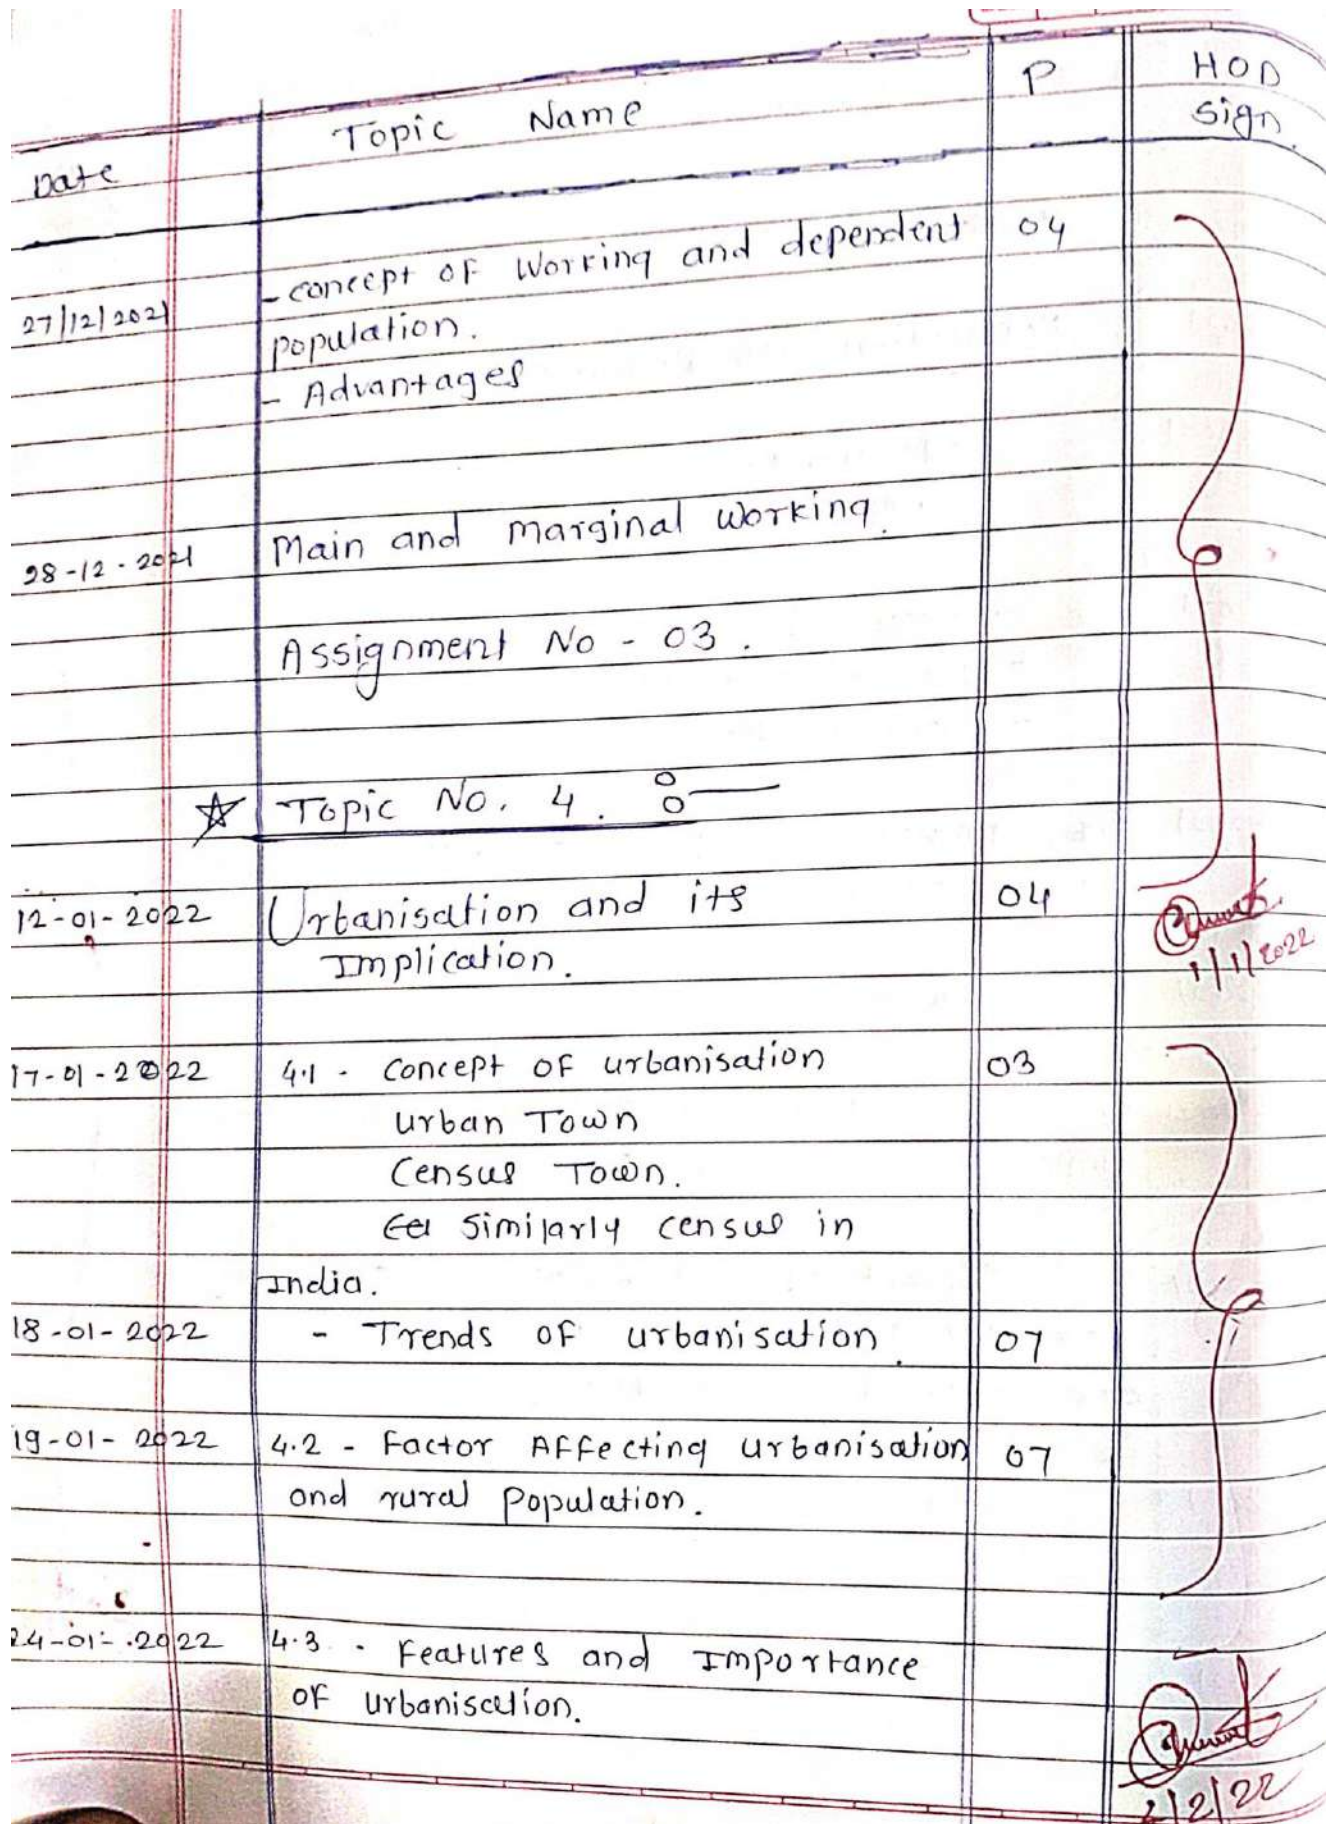 Date Topic Name P HOD
Sign
27/12/2021 - concept of Working and dependent 04
population.
- Advantages
28-12-2021 Main and marginal working.
Assignment No - 03.
☆ Topic No. 4. :-
12-01-2022 Urbanisation and its 04
Implication.
1/1/2022
17-01-2022 4.1 - Concept of urbanisation 03
urban Town
Census Town.
similarly census in
India.
18-01-2022 - Trends of urbanisation. 07
19-01-2022 4.2 - Factor Affecting urbanisation 07
and rural population.
24-01-2022 4.3 - Features and Importance
of urbanisation.
2/2/22